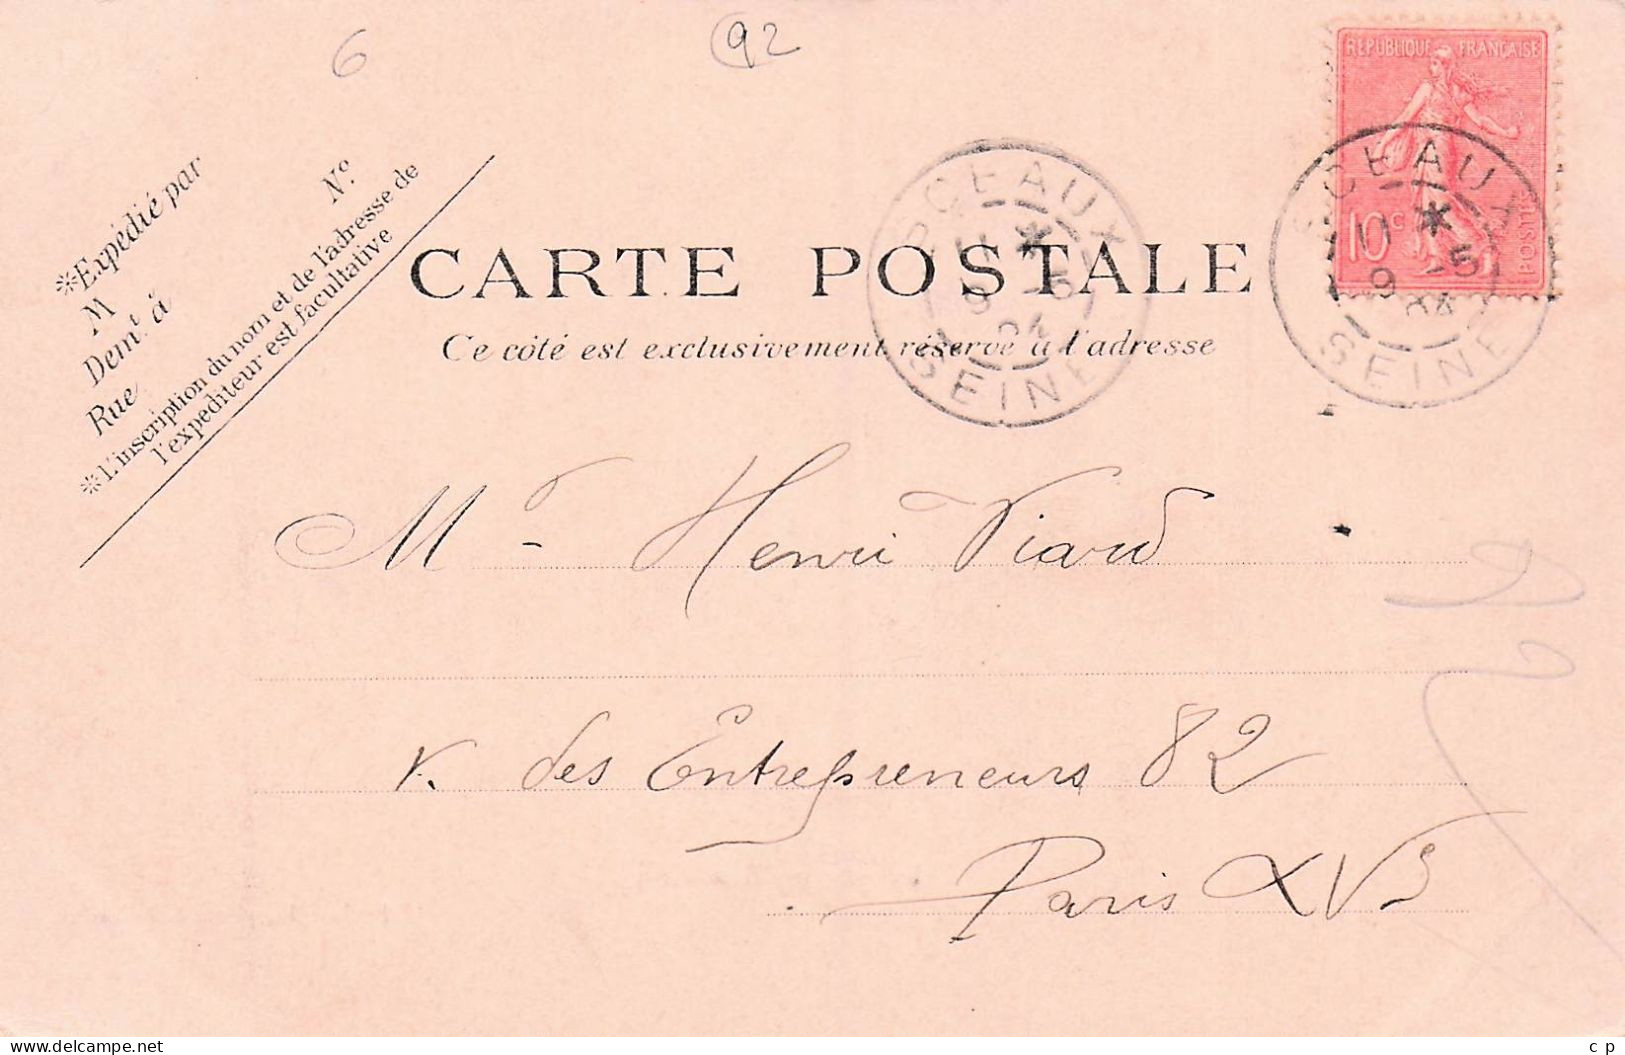 6
92
RÉPUBLIQUE FRANÇAISE
10c
POSTES
SCEAUX
9 -5
04
SEINE
SCEAUX
9 -5
04
SEINE
※Expédié par
M
Demt à
Rue
No
※L'inscription du nom et de l'adresse de
l'expéditeur est facultative
CARTE POSTALE
Ce côté est exclusivement réservé à l'adresse
Mr Henri Viard
r. des Entrepreneurs 82
Paris XVe
delcampe.net
c p